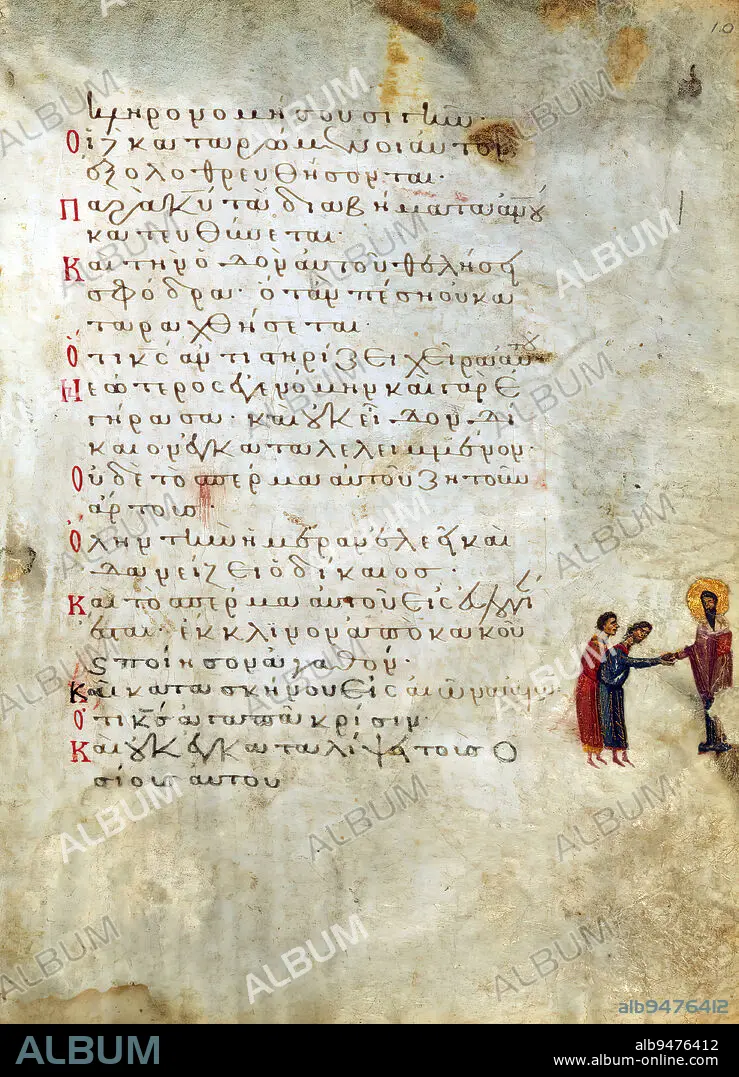 10
κληρονομήσουσι γῆν·
Οἱ δὲ καταρώμενοι αὐτὸν
ἐξολοθρευθήσονται·
Παρὰ κυ τὰ διαβήματα ἀνου
κατευθύνεται·
Καὶ τὴν ὁδὸν αὐτοῦ θελήσει
σφόδρα· ὅταν πέσῃ οὐ κα
ταραχθήσεται·
Ὅτι κς ἀντιστηρίζει χεῖρα αὐτοῦ
Νεώτερος ἐγενόμην καὶ γὰρ ἐ
γήρασα· καὶ οὐκ εἶδον δί
καιον ἐγκαταλελειμμένον·
Οὐδὲ τὸ σπέρμα αὐτοῦ ζητοῦν
ἄρτους·
Ὅλην τὴν ἡμέραν ἐλεεῖ καὶ
δανείζει ὁ δίκαιος·
Καὶ τὸ σπέρμα αὐτοῦ εἰς εὐλογί
αν ἔσται· ἔκκλινον ἀπὸ κακοῦ
ϛ ποίησον ἀγαθόν·
Καὶ κατασκήνου εἰς αἰῶνα αἰῶνος·
Ὅτι κς ἀγαπᾷ κρίσιν·
Καὶ οὐκ ἐγκαταλείψει τοὺς ὁ
σίους αὐτοῦ
ALBUM
alb9476412
ALBUM
alb9476412
www.album-online.com